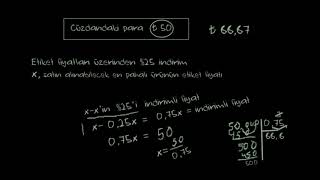 Cüzdandaki para ₺ 50 ₺ 66,67
Etiket fiyatları üzerinden %25 indirim
x, satın alınabilecek en pahalı ürünün etiket fiyatı
x-x'in %25'i indirimli fiyat
x-0,25x = 0,75x = indirimli fiyat
0,75x = 50
x = 50/0,75
50,00 0,75
450 66,6
500
450
500